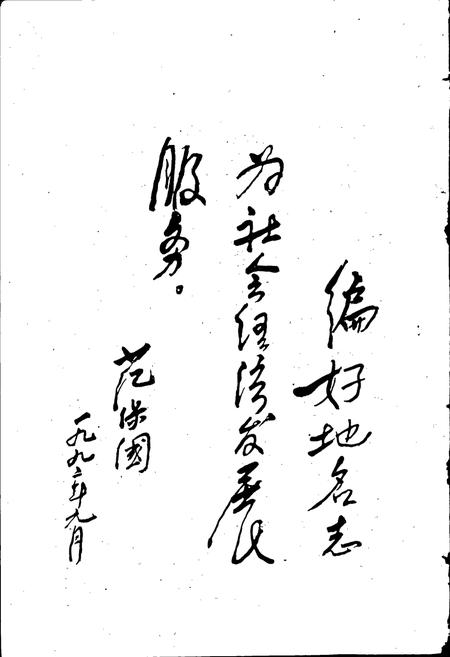 编好地名志
为社会经济发展
服务。
范保国
一九九二年九月